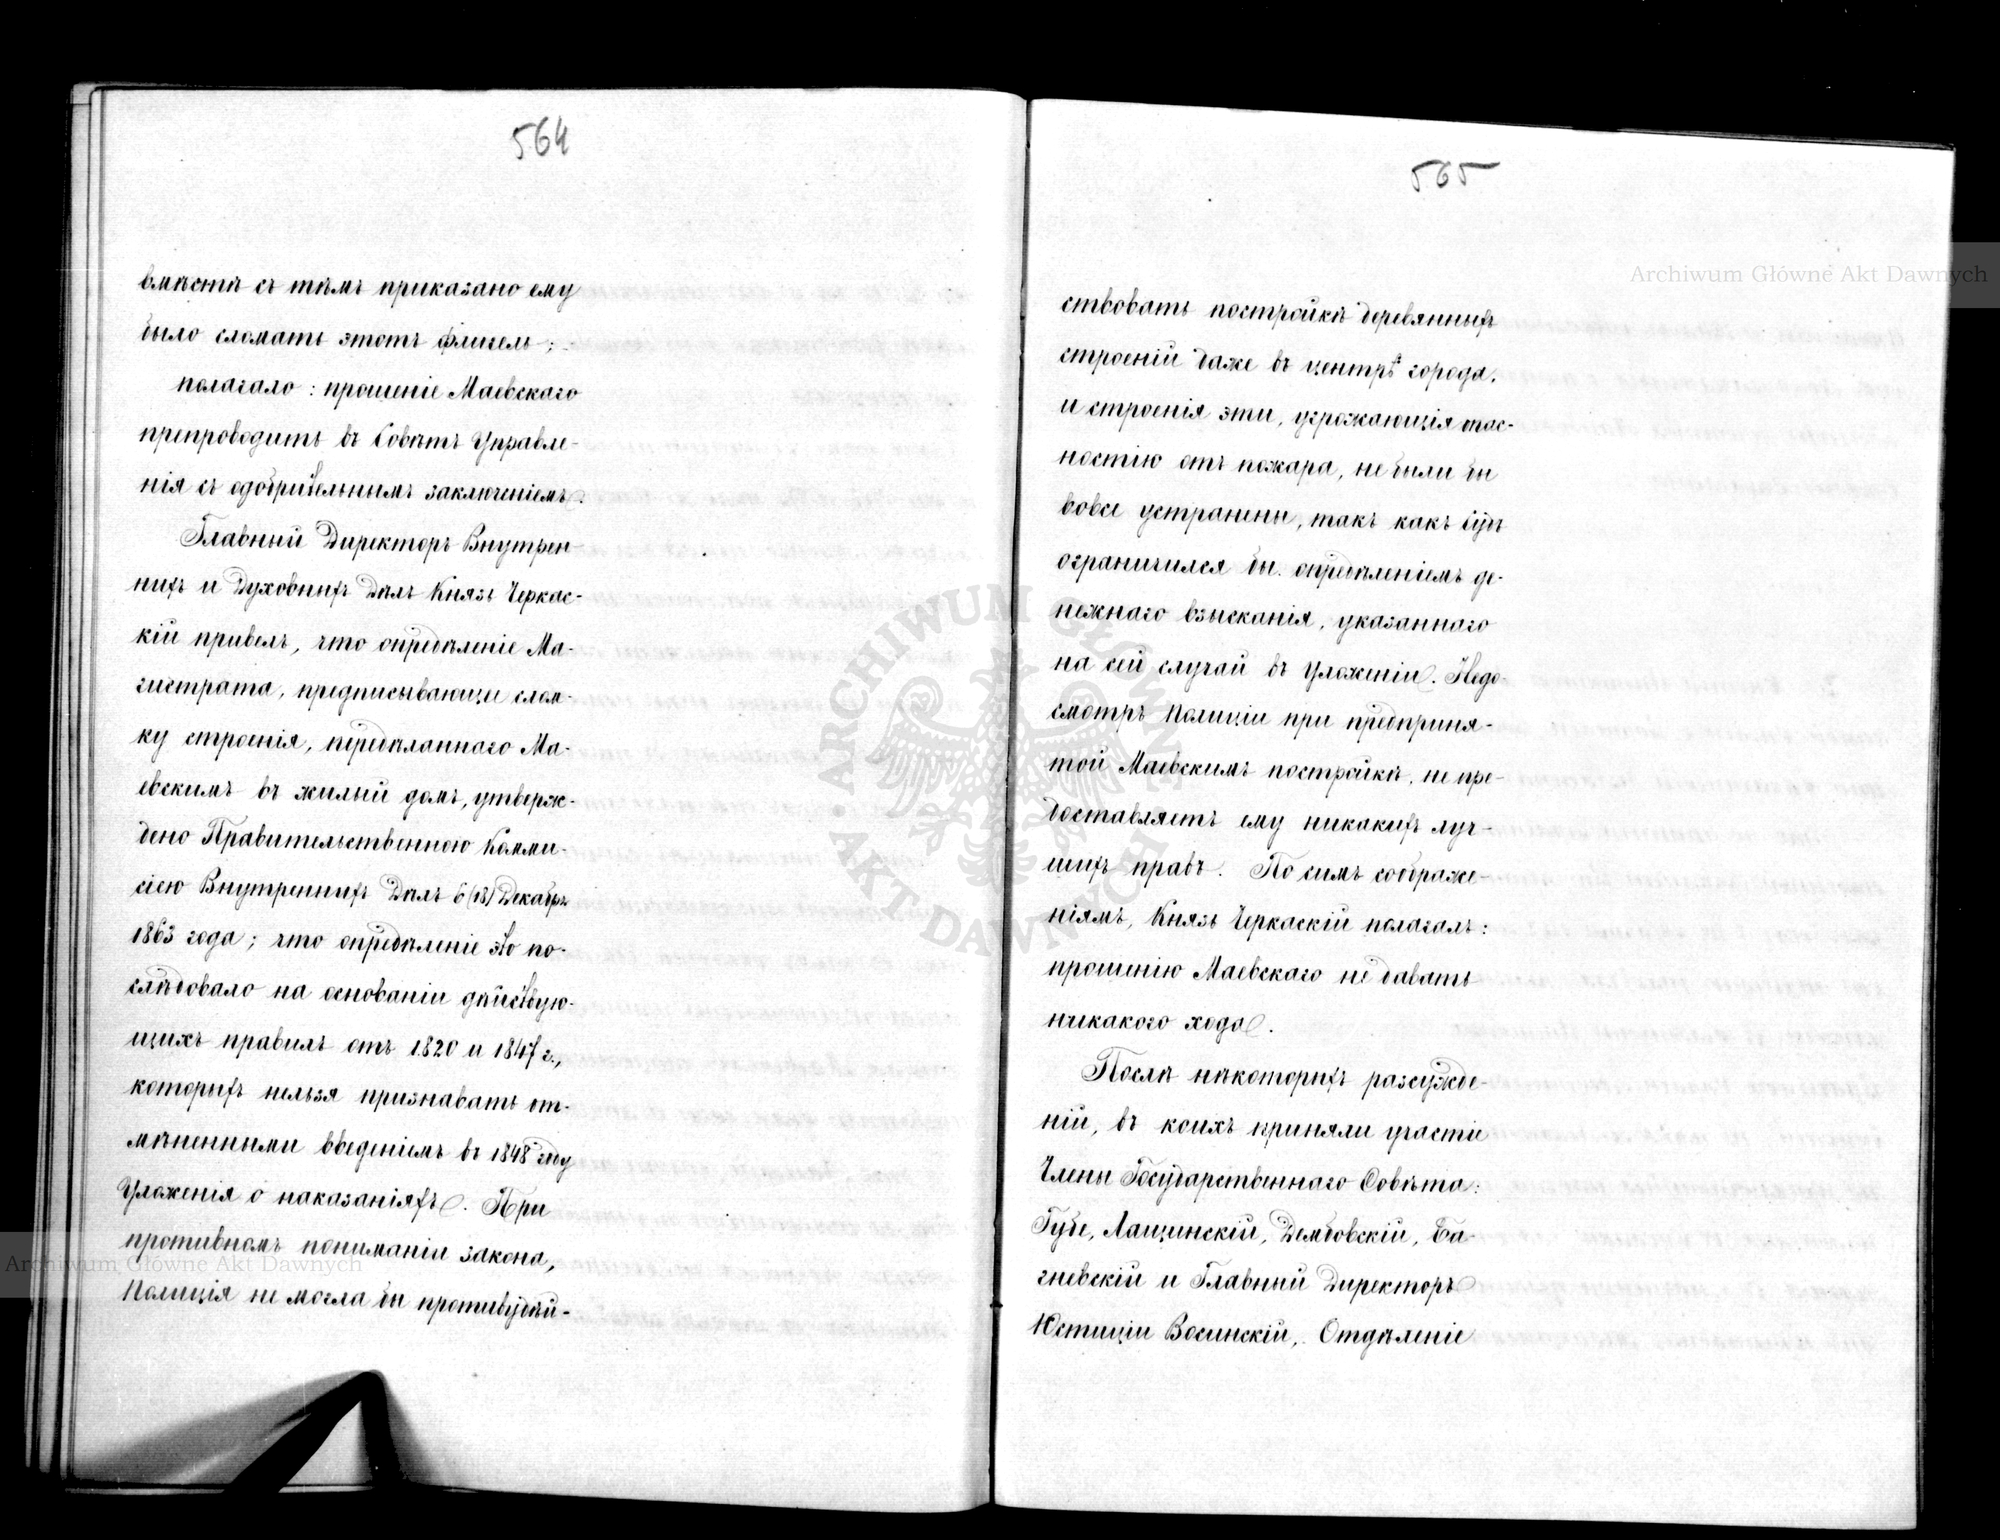 564
вмѣстѣ съ тѣмъ приказано ему
было сломать этотъ флигель;
полагало: прошеніе Маевскаго
препроводить въ Совѣтъ Управле-
нія съ одобрительнымъ заключеніемъ.
Главный Директоръ Внутрен-
нихъ и Духовныхъ Дѣлъ Князь Черкас-
кій привелъ, что опредѣленіе Ма-
гистрата, предписывающее слом-
ку строенія, передѣланнаго Ма-
евскимъ въ жилый домъ, утверж-
дено Правительственною Комми-
сіею Внутреннихъ Дѣлъ 6 (18) Декабря
1863 года; что опредѣленіе это по-
слѣдовало на основаніи дѣйствую-
щихъ правилъ отъ 1820 и 1847 г.,
которыхъ нельзя признавать от-
мѣненными введеніемъ въ 1848 году
Уложенія о наказаніяхъ. При
противномъ пониманіи закона,
Полиція не могла бы противудѣй-
565
ствовать постройкѣ деревянныхъ
строеній даже въ центрѣ города,
и строенія эти, угрожающія опас-
ностію отъ пожара, не были бы
вовсе устранены, такъ какъ судъ
ограничился бы опредѣленіемъ де-
нежнаго взысканія, указаннаго
на сей случай въ Уложеніи. Недо-
смотръ Полиціи при предприня-
той Маевскимъ постройкѣ, не пре-
доставляетъ ему никакихъ луч-
шихъ правъ. По симъ соображе-
ніямъ, Князь Черкаскій полагалъ:
прошенію Маевскаго не давать
никакого хода.
Послѣ нѣкоторыхъ разсужде-
ній, въ коихъ приняли участіе
Члены Государственнаго Совѣта:
Губе, Лащинскій, Дембовскій, Ба-
гневскій и Главный Директоръ
Юстиціи Восинскій, Отдѣленіе
Archiwum Główne Akt Dawnych
Archiwum Główne Akt Dawnych
ARCHIWUM GŁÓWNE AKT DAWNYCH